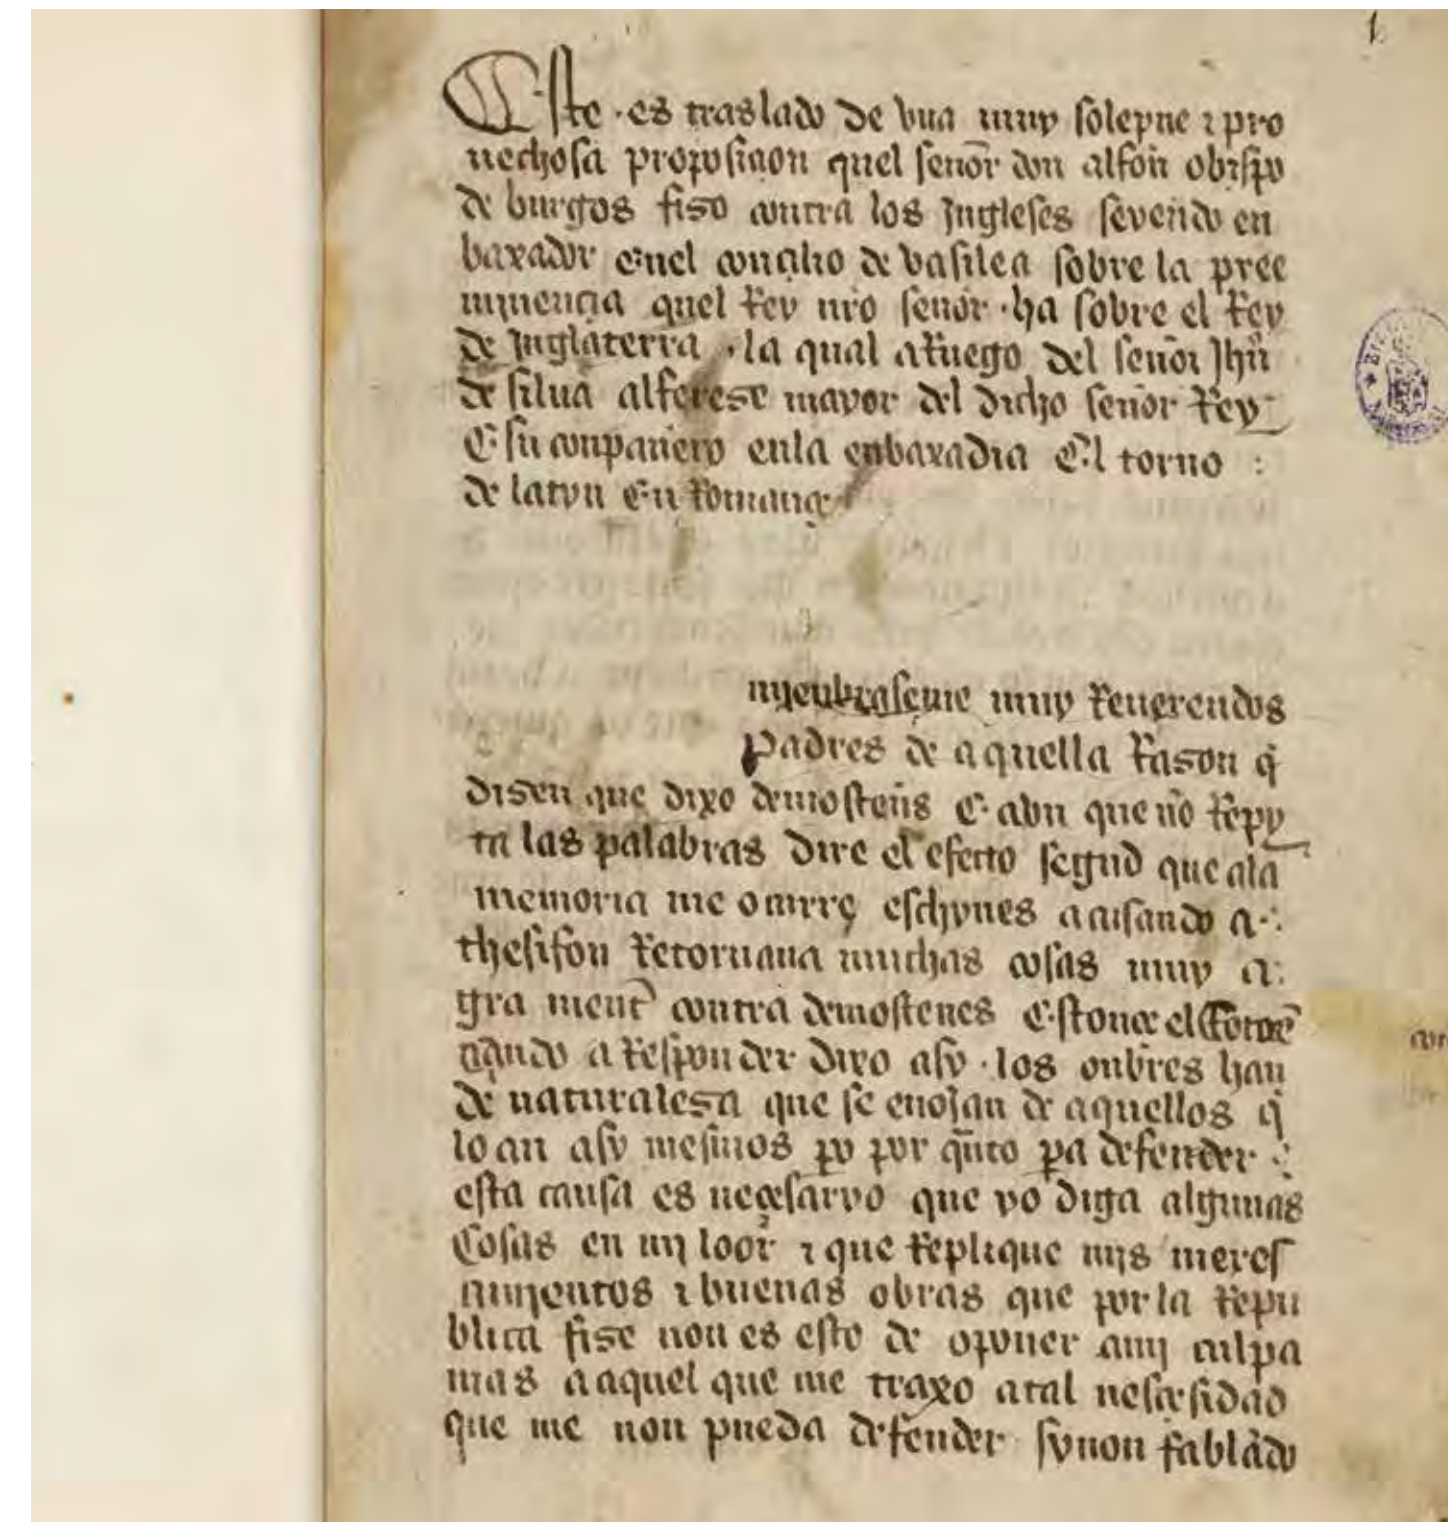 1
Este · es traslado de vna muy solepne ⁊ pro
uechosa proposiçion quel señor don alfoñ obispo
de burgos fiso contra los Ingleses seyendo en
baxador enel conçilio de basilea sobre la pree
minençia quel Rey nr̃o señor · ha sobre el Rey
de Inglaterra · la qual a Ruego del señor Jhũ
de silua alferese mayor del dicho señor Rey
E su conpañero enla enbaxadia El torno :
de latyn En Romançe
mjenbraseme muy Reuerendos
padres de aquella Rason q̃
disen que dixo demosteñs E avn que nõ Repy
ta las palabras dire el efecto segũd que ala
memoria me ocurre eschynes acusando a
thesifon Retornaua muchas cosas muy a
gra ment̃ contra demostenes Estonçe el
a Responder dixo asy · los onbres han
de naturalesa que se enojan de aquellos q̃
loan asy mesmos ꝑo por qũto ꝑa defender
esta causa es neçesaryo que yo diga algunas
Cosas en mj loor ⁊ que Replique mjs meresç
imjentos ⁊ buenas obras que por la Repu
blica fise non es esto de oponer amj culpa
mas aaquel que me traxo atal nesçesidad
que me non pueda defender synon fablãdo